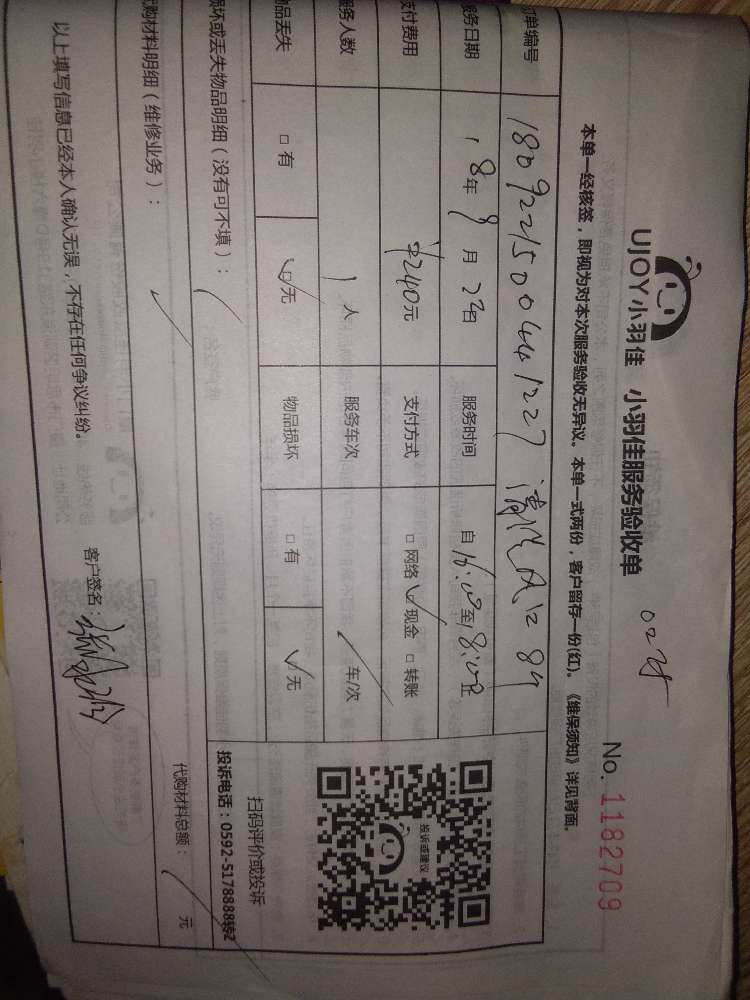 UJOY小羽佳 小羽佳服务验收单
No. 1182709
本单一经核签，即视为对本次服务验收无异议。本单一式两份，客户留存一份(红)。《维保须知》详见背面。
单编号 1809221500441227
服务日期 18年9月23日 服务时间 自16:00至18:00止
支付费用 ¥240元 支付方式 □ 网络 ✓现金 □ 转账
服务人数 1人 服务车次 / 车/次
物品丢失 □ 有 ☑无 物品损坏 □ 有 ✓无
损坏或丢失物品明细（没有可不填）：
代购材料明细（维修业务）：
代购材料总额： 元
投诉或建议
扫码评价或投诉
投诉电话：0592-5178888转2
以上填写信息已经本人确认无误，不存在任何争议纠纷。
客户签名：